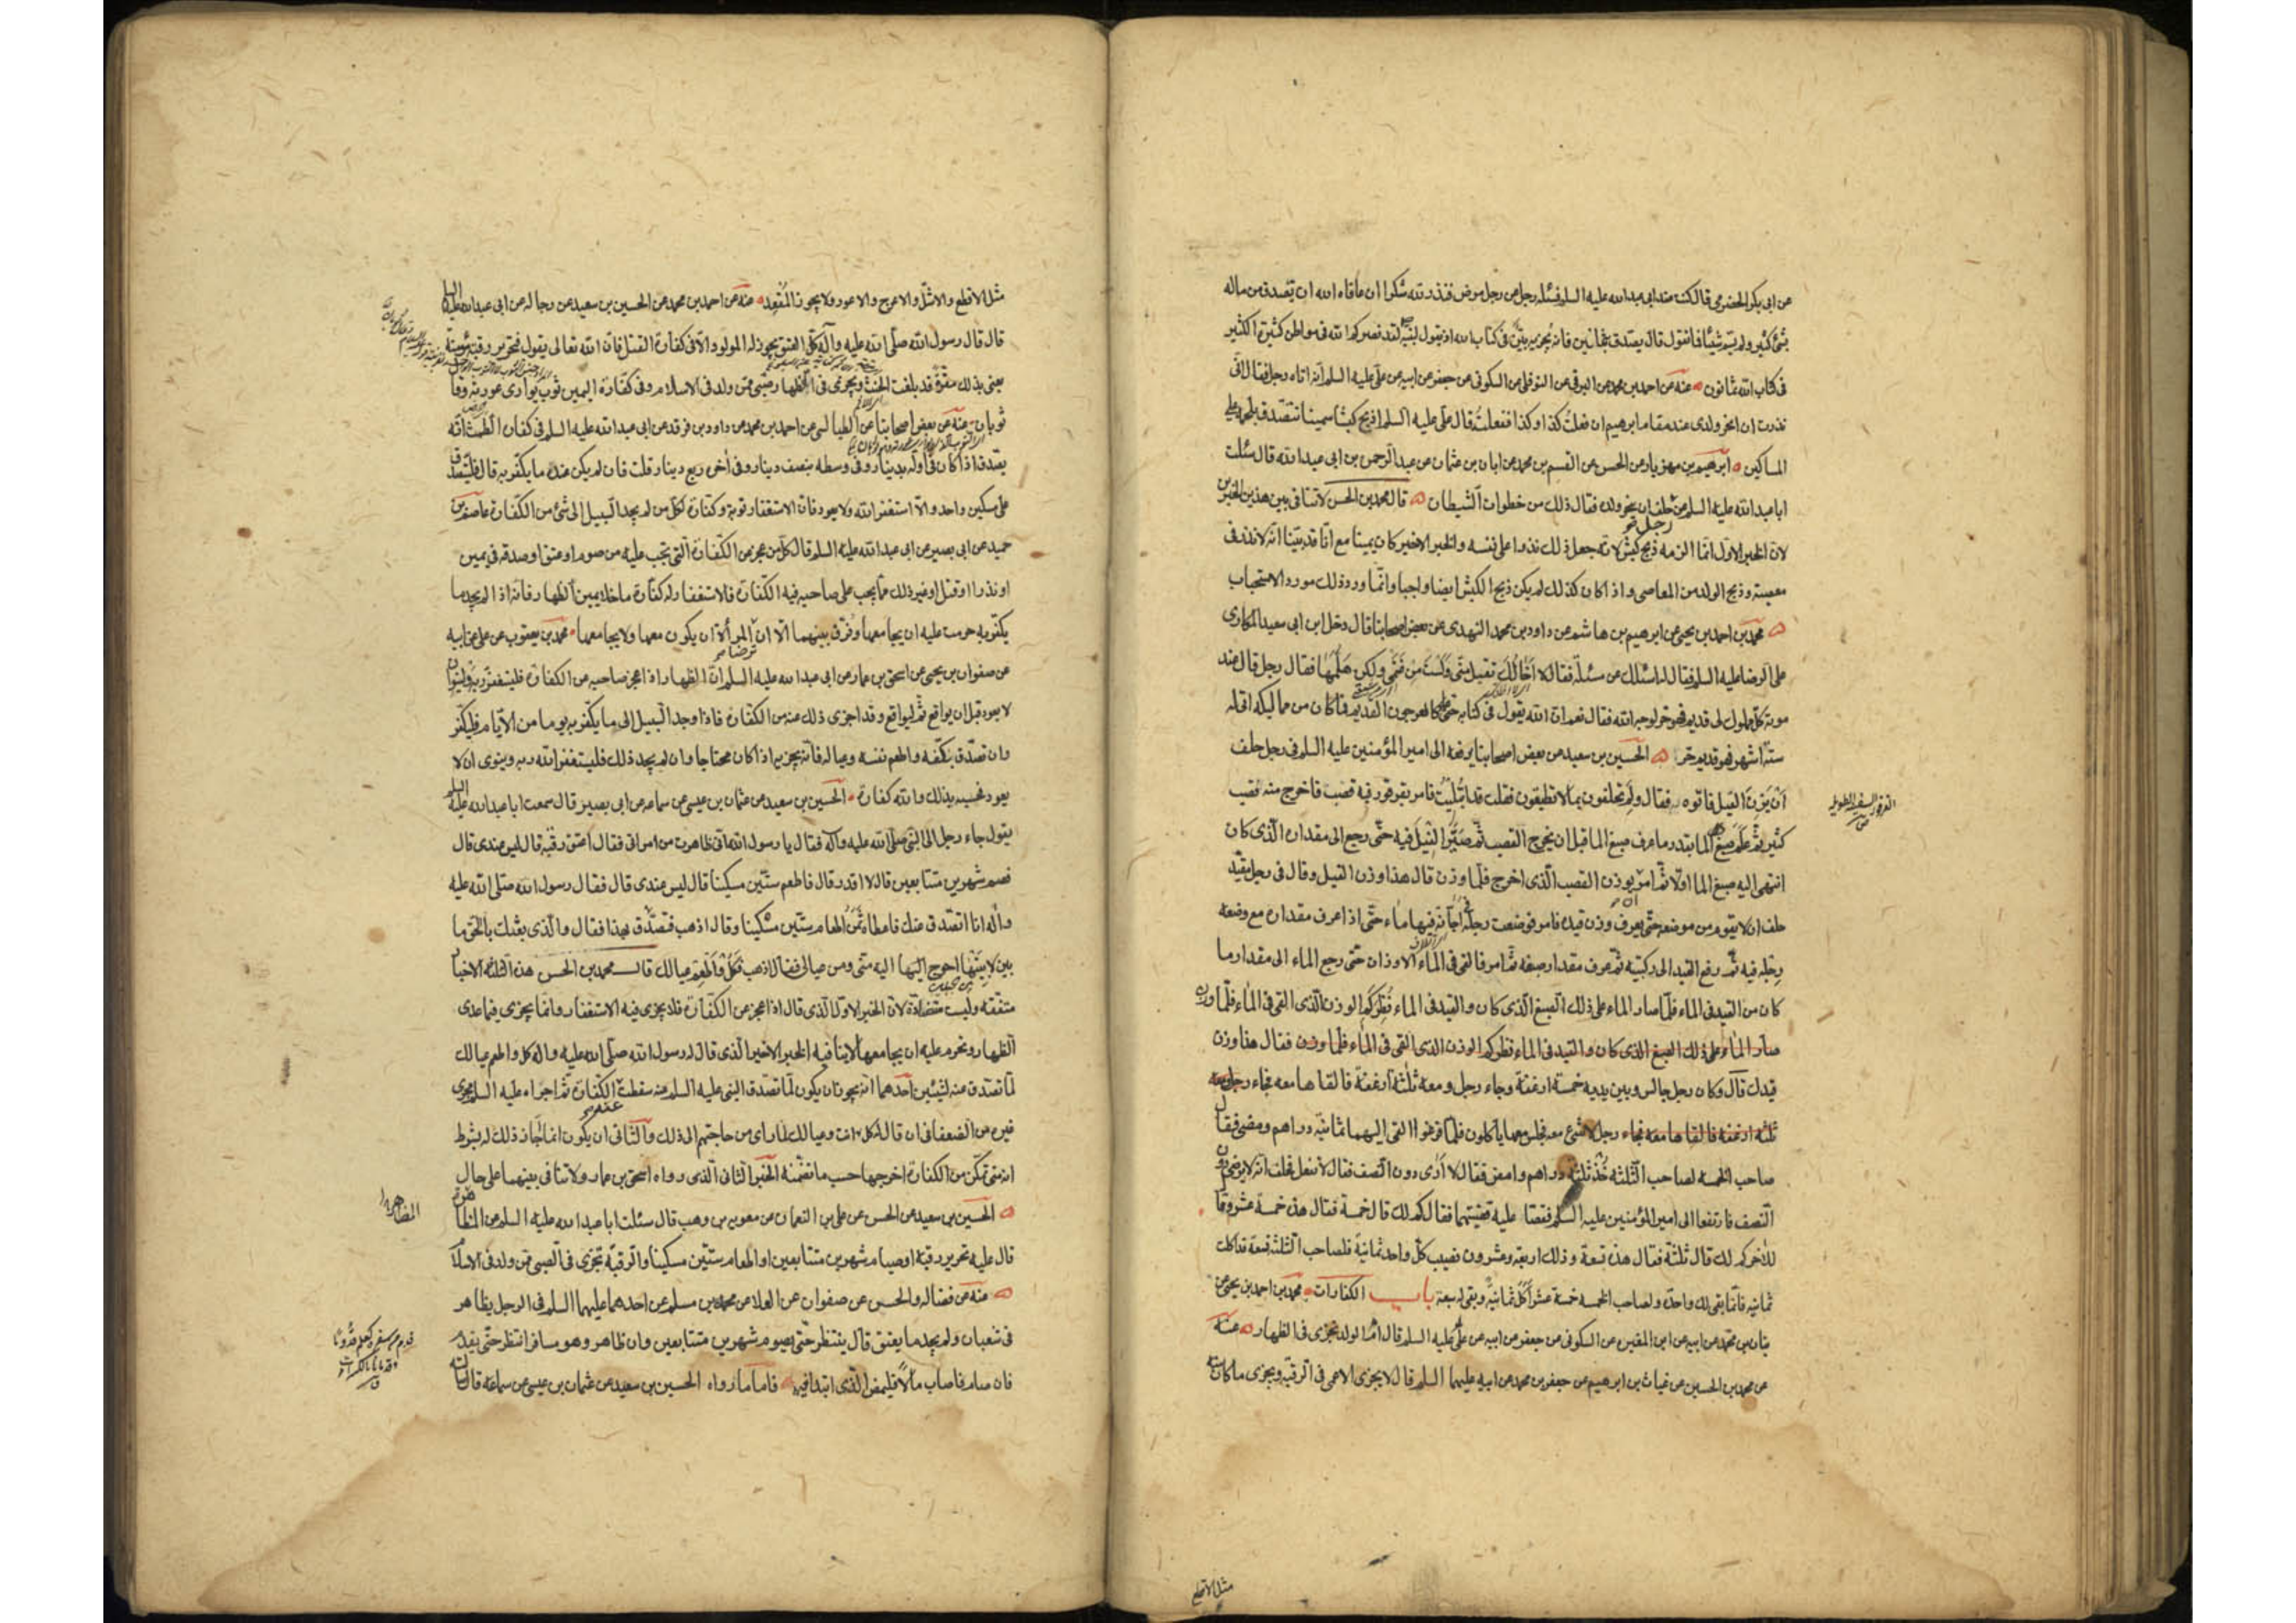 عن ابی بکر الحضرمی قال کنت عند ابی عبدالله علیه السلم فسئله رجل عن رجل مرض فنذر لله شکرا ان عافاه الله ان یتصدق من ماله
بشیء کثیر ولم یسم شیئا فما تقول قال یتصدق بثمانین فانه یجزیه بین فی کتاب الله اذ یقول لنبیه لقد نصرکم الله فی مواطن کثیرة الکثیر
فی کتاب الله ثمانون عنه عن احمد بن محمد عن البرقی عن النوفلی عن السکونی عن جعفر عن ابیه عن علی علیه السلم انه اتاه رجل فقال انی
نذرت ان انحر ولدی عند مقام ابرهیم ان فعلت کذا و کذا ففعلته قال علی علیه السلم اذبح کبشا سمینا تتصدق بلحمه علی
المساکین ابرهیم بن مهزیار عن الحسن عن القسم بن محمد عن ابان بن عثمان عن عبد الرحمن بن ابی عبدالله قال سئلت
ابا عبدالله علیه السلم عن رجل حلف ان ینحر ولده فقال ذلک من خطوات الشیطان قال محمد بن الحسن لا تنافی بین هذین الخبرین
لان الخبر الاول انما الزمه ذبح کبش لانه جعل ذلک نذرا علی نفسه والخبر الاخیر کان یمینا مع انا قد بینا انه لا نذر فی
معصیة وذبح الولد من المعاصی و اذا کان کذلک لم یکن ذبح الکبش ایضا واجبا وانما ورد ذلک مورد الاستحباب
محمد بن احمد بن یحیی عن ابرهیم بن هاشم عن داود بن محمد النهدی عن بعض اصحابنا قال دخل ابن ابی سعید المکاری
علی الرضا علیه السلم فقال له اسئلک عن مسئلة فقال لا اخالک تقبل منی ولست من غنمی ولکن هلمها فقال رجل قال عند
موته کل مملوک لی قدیم فهو حر لوجه الله فقال نعم ان الله یقول فی کتابه حتی عاد کالعرجون القدیم فما کان من ممالیکه اتی له
ستة اشهر فهو قدیم حر الحسین بن سعید عن بعض اصحابنا یرفعه الی امیر المؤمنین علیه السلم فی رجل حلف
ان یزن الفیل فاتوه به فقال ولم تحلفون بما لا تطیقون فقلت قد ابتلیت فامر بقرقور فیه قصب فاخرج منه قصب
کثیر ثم علم صبغ الماء بقدر ما عرف صبغ الماء قبل ان یخرج القصب ثم صیر الفیل فیه حتی رجع الی مقداره الذی کان
انتهی الیه صبغ الماء اولا ثم امر بوزن القصب الذی اخرج فلما وزن قال هذا وزن الفیل وقال فی رجل مقید
حلف ان لا یقوم من موضعه حتی یعرف وزن قیده فامر فوضعت رجله فی اجانة فیها ماء حتی اذا عرف مقداره مع وضعه
رجله فیه ثم رفع القید الی رکبتیه ثم عرف مقدار صبغه ثم امر فالقی فی الماء الاوزان حتی رجع الماء الی مقدار ما
کان من القید فی الماء فلما صار الماء علی ذلک الصبغ الذی کان والقید فی الماء نظر کم الوزن الذی القی فی الماء فلما وزن
صار الماء علی ذلک الصبغ الذی کان والقید فی الماء نظر کم الوزن الذی القی فی الماء فلما وزن فقال هذا وزن
قیدک قال وکان رجل جالس وبین یدیه خمسة ارغفة وجاء رجل ومعه ثلثة ارغفة فالقاها معه فجاء رجل معه
ثلثة ارغفة فالقاها معه فجاء رجل لا شیء معه فجلس معهما یاکلون فلما فرغوا القی الیهما ثمانیة دراهم ومضی فقال
صاحب الخمسة لصاحب الثلثة خذ ثلثة دراهم وامض فقال لا ارضی دون النصف فقال لا تفعل فحلف انه لا یرضی دون
النصف فارتفعا الی امیر المؤمنین علیه السلم فقصا علیه قصتهما فقال کم لک قال خمسة فقال هذه خمسة عشر وقال
للآخر کم لک قال ثلثة فقال هذه تسعة وذلک اربعة وعشرون نصیب کل واحد ثمانیة فلصاحب الثلثة تسعة قد اکلت
ثمانیه فانما بقی لک واحدة ولصاحب الخمسة خمسة عشر اکل ثمانیة وبقی له سبعة باب الکفارات محمد بن احمد بن یحیی عن
بنان بن محمد عن ابیه عن ابن المغیرة عن السکونی عن جعفر عن ابیه عن علی علیه السلم قال ام الولد تجزی فی الظهار عنه
عن محمد بن الحسین عن غیاث بن ابرهیم عن جعفر بن محمد عن ابیه علیهما السلم قال لا یجزی الاعمی فی الرقبة ویجزی ما کان منه
مثل الاقطع
مثل الاقطع والاشل والاعرج والاعور ولا یجوز المقعد عنه عن احمد بن محمد عن الحسین بن سعید عن رجاله عن ابی عبدالله علیه السلم
قال قال رسول الله صلی الله علیه وآله کل العتق یجوز له المولود الا فی کفارة القتل فان الله تعالی یقول فتحریر رقبة مؤمنة
یعنی بذلک مقرة قد بلغت الحنث ویجزی فی الظهار صبی ممن ولد فی الاسلام وفی کفارة الیمین ثوب یواری عورته وقال
ثوبان عنه عن بعض اصحابنا عن الطیالسی عن احمد بن محمد عن داود بن فرقد عن ابی عبدالله علیه السلم فی کفارة الطمث انه
یتصدق اذا کان فی اوله بدینار وفی وسطه بنصف دینار وفی اخره ربع دینار قلت فان لم یکن عنده ما یکفر به قال فلیتصدق
علی مسکین واحد والا استغفر الله ولا یعود فان الاستغفار توبة وکفارة لکل من لم یجد السبیل الی شیء من الکفارة عاصم بن
حمید عن ابی بصیر عن ابی عبدالله علیه السلم قال کل من عجز عن الکفارة التی تجب علیه من صوم او عتق او صدقة فی یمین
او نذر او قتل او غیر ذلک مما یجب علی صاحبه فیه الکفارة فالاستغفار له کفارة ما خلا یمین الظهار فانه اذا لم یجد ما
یکفر به حرمت علیه ان یجامعها وفرق بینهما الا ان ترضی المرأة ان یکون معها ولا یجامعها محمد بن یعقوب عن علی عن ابیه
عن صفوان بن یحیی عن اسحق بن عمار عن ابی عبدالله علیه السلم ان الظهار اذا عجز صاحبه عن الکفارة فلیستغفر ربه ولینو ان
لا یعود قبل ان یواقع ثم لیواقع وقد اجزی ذلک عنه من الکفارة فاذا وجد السبیل الی ما یکفر به یوما من الایام فلیکفر
وان تصدق بکفه واطعم نفسه وعیاله فانه یجزیه اذا کان محتاجا وان لم یجد ذلک فلیستغفر الله ربه وینوی ان لا
یعود فحسبه بذلک والله کفارة الحسین بن سعید عن عثمان بن عیسی عن سماعه عن ابی بصیر قال سمعت ابا عبدالله علیه السلم
یقول جاء رجل الی النبی صلی الله علیه واله فقال یا رسول الله انی ظاهرت من امراتی فقال اعتق رقبة قال لیس عندی قال
فصم شهرین متتابعین قال لا اقدر قال فاطعم ستین مسکینا قال لیس عندی قال فقال رسول الله صلی الله علیه
واله انا اتصدق عنک فاعطاه ثمن اطعام ستین مسکینا وقال اذهب فتصدق بهذا فقال والذی بعثک بالحق ما
بین لابتیها احوج الیها الیه منی ومن عیالی فقال اذهب فکل واطعم عیالک قال محمد بن الحسن هذه الثلثة الاخبار
متفقة ولیست متضادة لان الخبر الاول الذی قال اذا عجز عن الکفارة فلا یجزی فیه الاستغفار وانما یجزی فیما عدی
الظهار وتحرم علیه ان یجامعها لا ینافیه الخبر الاخیر الذی قال له رسول الله صلی الله علیه واله کل واطعم عیالک
لما تصدق عنه لشیئین احدهما انه یجوز ان یکون لما تصدق النبی علیه السلم عنه سقطت عنه الکفارة ثم اجراه علیه السلم مجری
غیره من الضعفاء فی ان قال له کل انت وعیالک لما رای من حاجتهم الی ذلک والثانی ان یکون انما اجاز ذلک له بشرط
انه متی تمکن من الکفارة اخرجها حسب ما تضمنه الخبر الثانی الذی رواه اسحق بن عمار ولا تنافی بینهما علی حال
الحسین بن سعید عن الحسن عن علی بن النعمان عن معویه بن وهب قال سئلت ابا عبدالله علیه السلم عن المظاهر
قال علیه تحریر رقبة او صیام شهرین متتابعین او اطعام ستین مسکینا والرقبة تجزی فی الصبی ممن ولد فی الاسلام
عنه عن فضاله والحسن عن صفوان عن العلا عن محمد بن مسلم عن احدهما علیهما السلم فی الرجل یظاهر
فی شعبان ولم یجد ما یعتق قال ینتظر حتی یصوم شهرین متتابعین وان ظاهر وهو مسافر انتظر حتی یقدم
فان صام فاصاب مالا فلیمض الذی ابتدا فیه فاما ما رواه الحسین بن سعید عن عثمان بن عیسی عن سماعه قال سالته